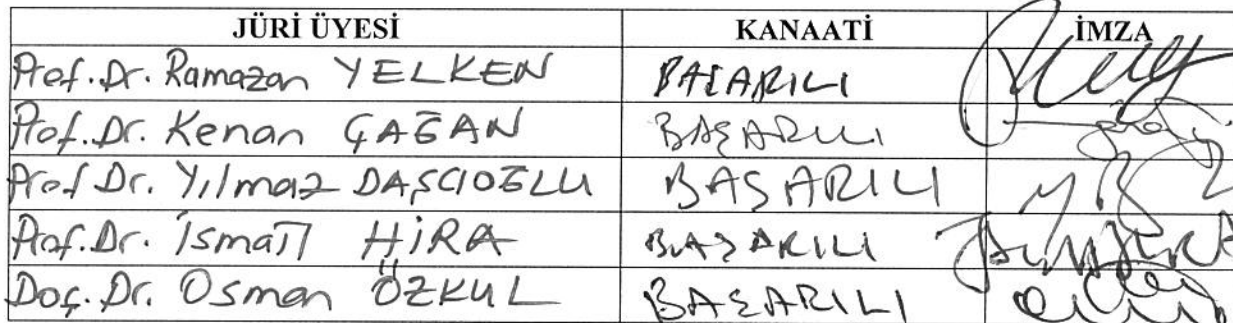 JÜRİ ÜYESİ KANAATİ İMZA
Prof. Dr. Ramazan YELKEN BAŞARILI
Prof. Dr. Kenan ÇAĞAN BAŞARILI
Prof Dr. Yılmaz DAŞCIOĞLU BAŞARILI
Prof. Dr. İsmail HİRA BAŞARILI
Doç. Dr. Osman ÖZKUL BAŞARILI